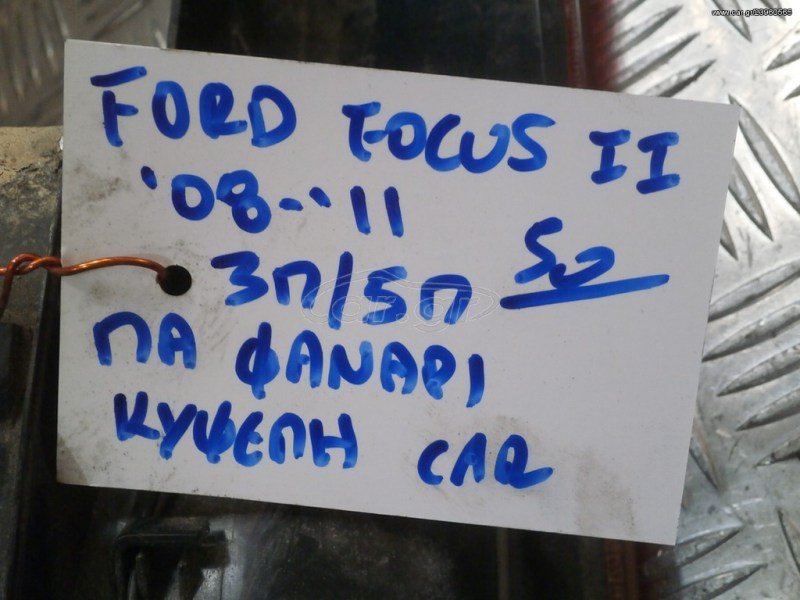 www.car.gr/23963565
FORD FOCUS II
'08-'11
3Π/5Π 50
car.gr
ΠΑ ΦΑΝΑΡΙ
ΚΥΨΕΛΗ CAR